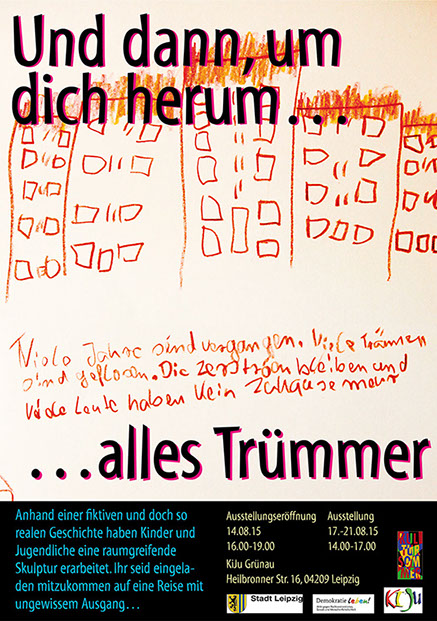 Und dann, um
dich herum...
Viele Jahre sind vergangen. Viele Tränen
sind geflosen. Die zerstörten bleiben und
viele Leute haben kein Zuhause mehr
...alles Trümmer
Anhand einer fiktiven und doch so
realen Geschichte haben Kinder und
Jugendliche eine raumgreifende
Skulptur erarbeitet. Ihr seid eingela-
den mitzukommen auf eine Reise mit
ungewissem Ausgang...
Ausstellungseröffnung
14.08.15
16.00-19.00
Ausstellung
17.-21.08.15
14.00-17.00
KiJu Grünau
Heilbronner Str. 16, 04209 Leipzig
Stadt Leipzig
Demokratie leben!
KiJu